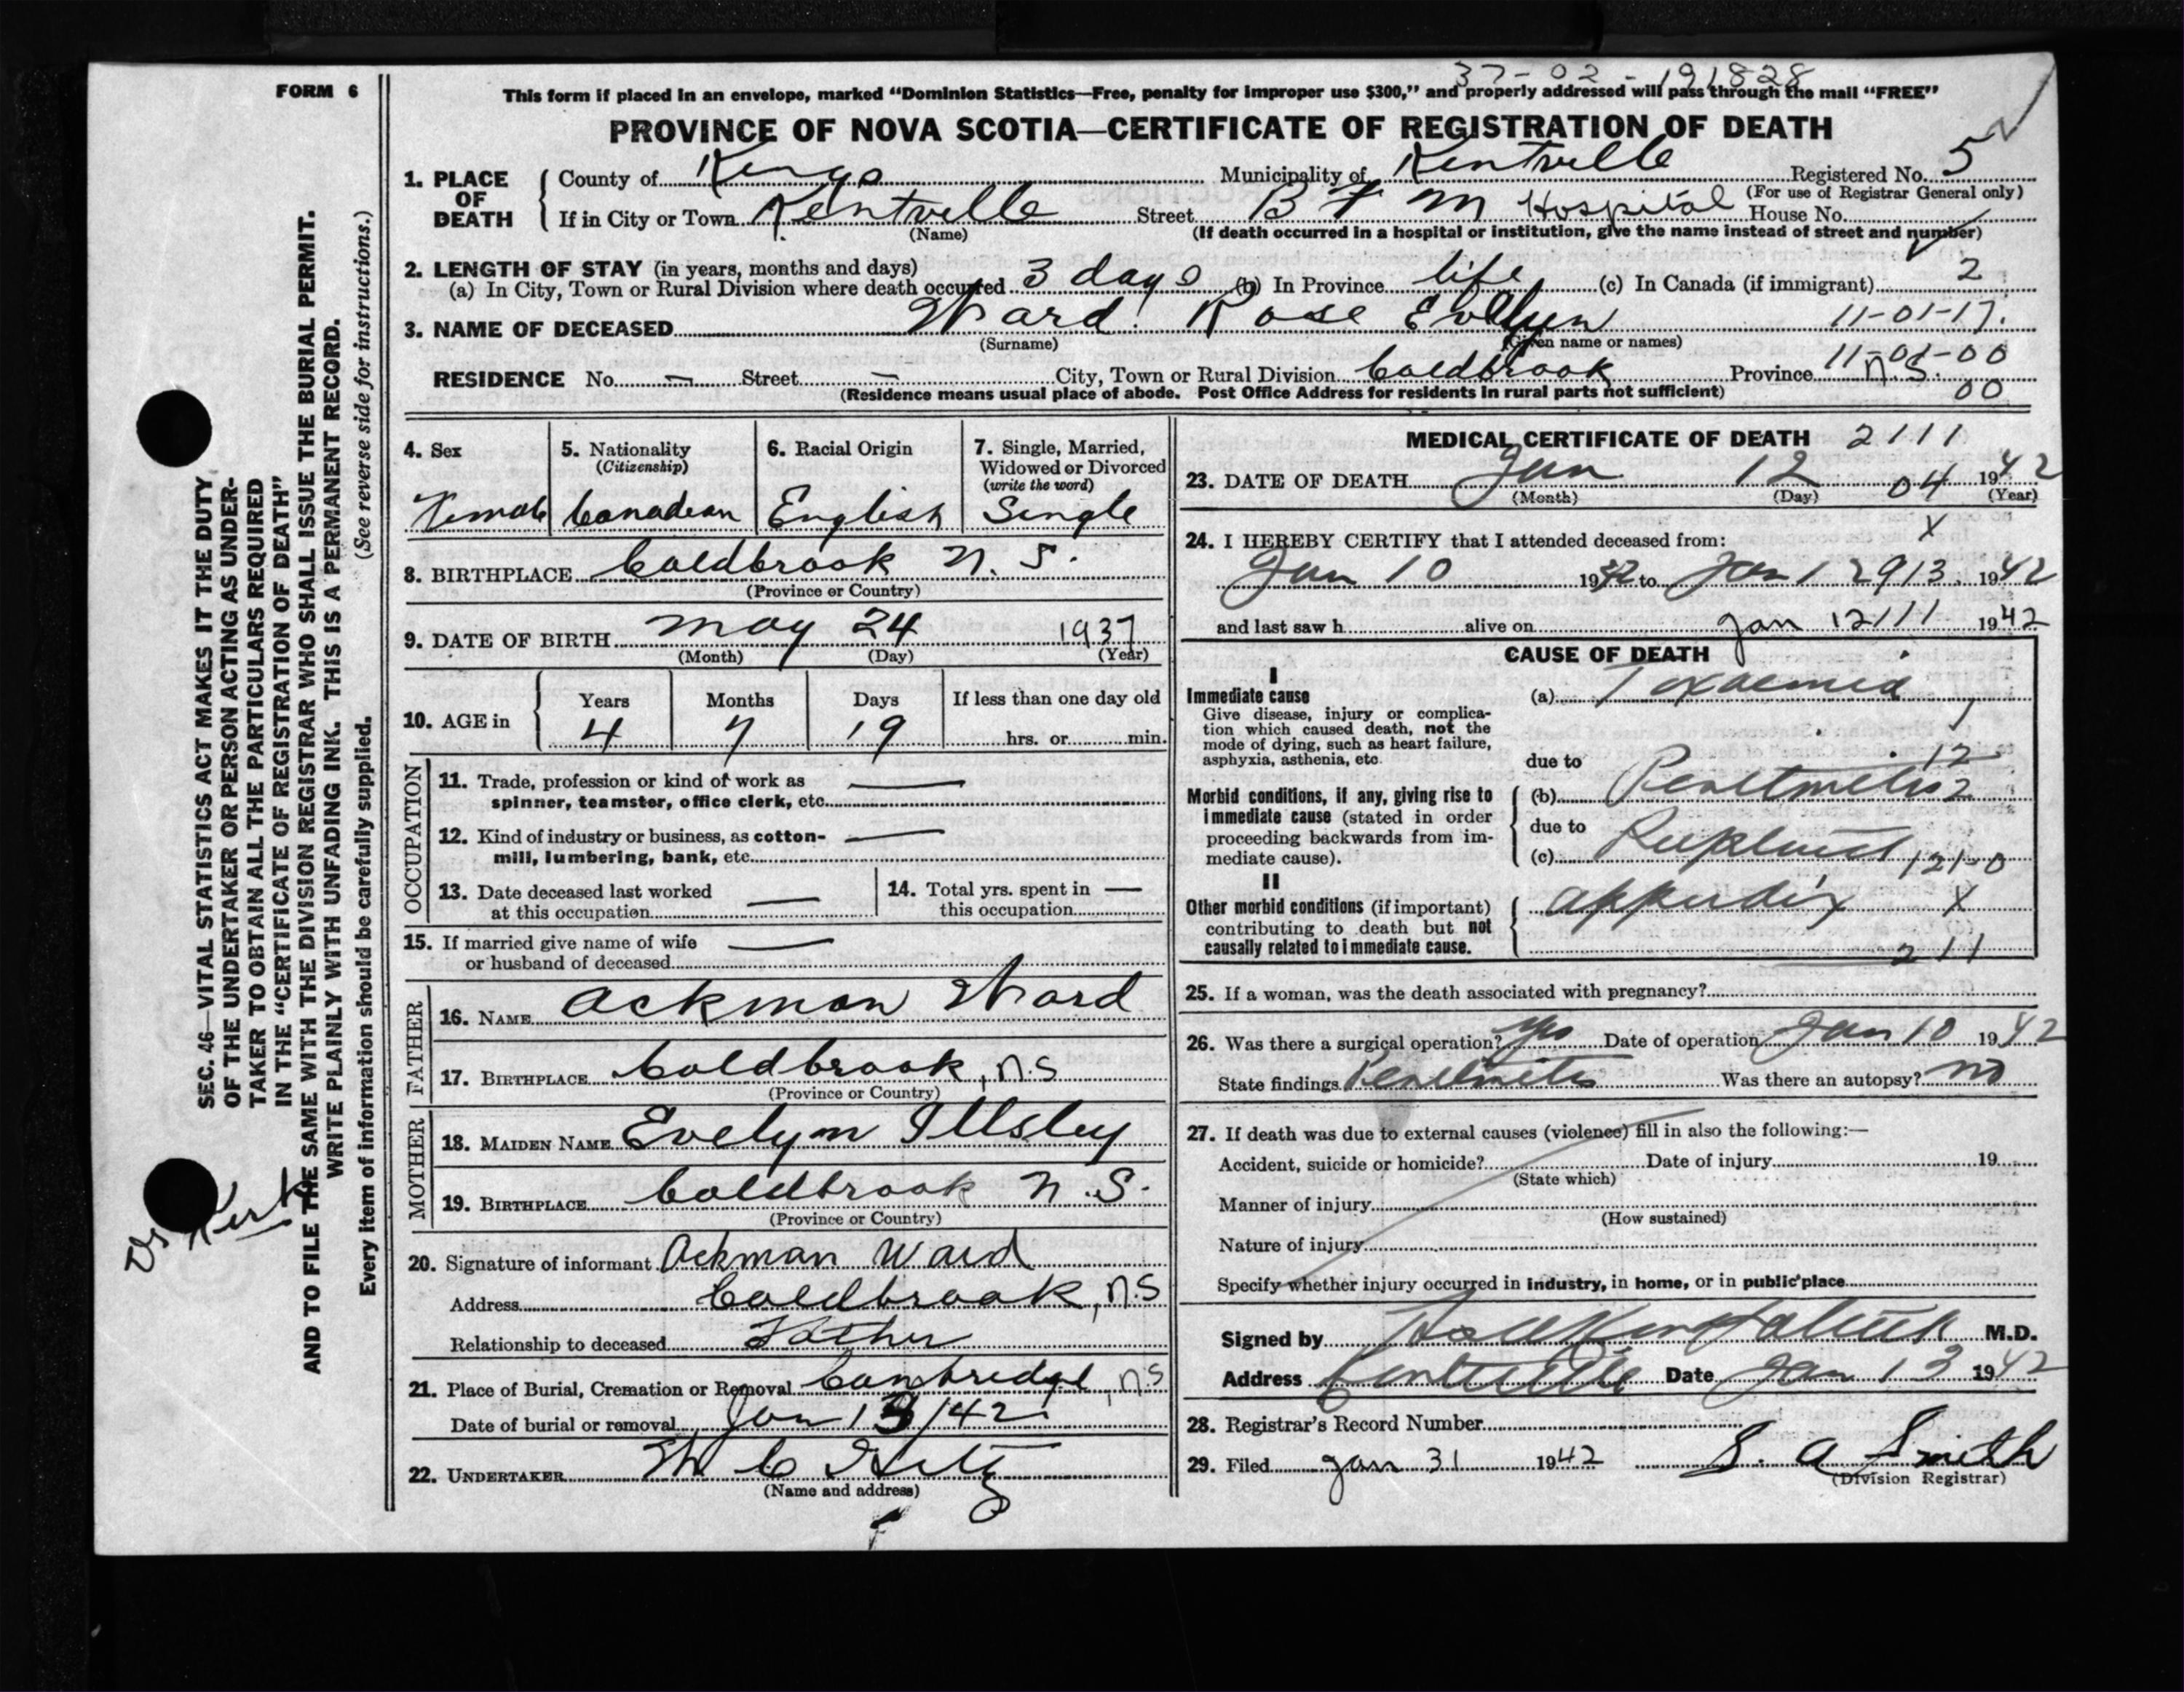 37-02-191828
FORM 6
This form if placed in an envelope, marked "Dominion Statistics—Free, penalty for improper use $300," and properly addressed will pass through the mail "FREE"
PROVINCE OF NOVA SCOTIA—CERTIFICATE OF REGISTRATION OF DEATH
1. PLACE OF DEATH County of Kings Municipality of Kentville Registered No. 5
(For use of Registrar General only)
If in City or Town Kentville Street B F M Hospital House No.
(Name) (If death occurred in a hospital or institution, give the name instead of street and number)
2. LENGTH OF STAY (in years, months and days)
(a) In City, Town or Rural Division where death occurred 3 days (b) In Province life (c) In Canada (if immigrant) 2
3. NAME OF DECEASED Ward Rose Evelyn 11-01-17.
(Surname) (Given name or names)
11-01-00
RESIDENCE No. — Street — City, Town or Rural Division Coldbrook Province N.S.
(Residence means usual place of abode. Post Office Address for residents in rural parts not sufficient) 00
4. Sex 5. Nationality 6. Racial Origin 7. Single, Married,
(Citizenship) Widowed or Divorced
(write the word)
Female Canadian English Single
8. BIRTHPLACE Coldbrook N. S.
(Province or Country)
9. DATE OF BIRTH May 24 1937
(Month) (Day) (Year)
10. AGE in Years Months Days If less than one day old
4 7 19 hrs. or min.
OCCUPATION
11. Trade, profession or kind of work as —
spinner, teamster, office clerk, etc.
12. Kind of industry or business, as cotton- —
mill, lumbering, bank, etc.
13. Date deceased last worked — 14. Total yrs. spent in —
at this occupation this occupation
15. If married give name of wife —
or husband of deceased
FATHER
16. NAME Ackman Ward
17. BIRTHPLACE Coldbrook, N.S
(Province or Country)
MOTHER
18. MAIDEN NAME Evelyn Illsley
19. BIRTHPLACE Coldbrook N.S.
(Province or Country)
20. Signature of informant Ackman Ward
Address Coldbrook, N.S
Relationship to deceased Father
21. Place of Burial, Cremation or Removal Cambridge, N.S
Date of burial or removal Jan 13/42
22. UNDERTAKER W C
(Name and address)
MEDICAL CERTIFICATE OF DEATH 2111
23. DATE OF DEATH Jan 12 04 1942
(Month) (Day) (Year)
24. I HEREBY CERTIFY that I attended deceased from: X
Jan 10 1942 to Jan 12 913. 1942
and last saw h alive on Jan 12 111 1942
CAUSE OF DEATH
I
Immediate cause (a) Toxaemia
Give disease, injury or complica-
tion which caused death, not the
mode of dying, such as heart failure,
asphyxia, asthenia, etc. due to 12
Morbid conditions, if any, giving rise to (b) Peritonitis 2
immediate cause (stated in order due to
proceeding backwards from im-
mediate cause). (c) Ruptured 121-0
II
Other morbid conditions (if important) appendix X
contributing to death but not
causally related to immediate cause. 211
25. If a woman, was the death associated with pregnancy?
26. Was there a surgical operation? Yes Date of operation Jan 10 1942
State findings Peritonitis Was there an autopsy? no
27. If death was due to external causes (violence) fill in also the following:—
Accident, suicide or homicide? Date of injury 19
(State which)
Manner of injury
(How sustained)
Nature of injury
Specify whether injury occurred in industry, in home, or in public place
Signed by Kirkpatrick M.D.
Address Kentville Date Jan 13 1942
28. Registrar's Record Number
29. Filed Jan 31 1942 S. A Smith
(Division Registrar)
SEC. 46—VITAL STATISTICS ACT MAKES IT THE DUTY
OF THE UNDERTAKER OR PERSON ACTING AS UNDER-
TAKER TO OBTAIN ALL THE PARTICULARS REQUIRED
IN THE "CERTIFICATE OF REGISTRATION OF DEATH"
AND TO FILE THE SAME WITH THE DIVISION REGISTRAR WHO SHALL ISSUE THE BURIAL PERMIT.
WRITE PLAINLY WITH UNFADING INK. THIS IS A PERMANENT RECORD.
Every item of information should be carefully supplied. (See reverse side for instructions.)
Dr Kirk